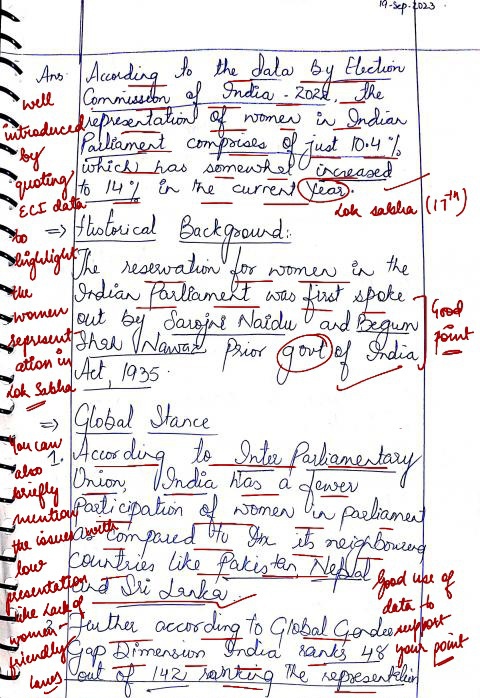 19-Sep-2023
Ans. According to the data by Election
Commission of India - 2022, the
representation of women in Indian
Parliament comprises of just 10.4 %
which has somewhat increased
to 14 % in the current year.
Lok sabha (17th)
well
introduced
by
quoting
ECI data
to
highlight
the
women
represent
ation in
Lok Sabha
=> Historical Background:
The reservation for women in the
Indian Parliament was first spoke
out by Sarojni Naidu and Begum
Nawaz prior govt of India
Act, 1935.
Good
point
=> Global Stance
1. According to Inter Parliamentary
Union, India has a fewer
Participation of women in parliament
as compared to its neighbouring
countries like Pakistan, Nepal
and Sri Lanka
You can
also
briefly
mention
the issues with
low
presentation
like lack of
women-
friendly
laws
2. Further according to Global Gender
Gap Dimension India ranks 48
out of 142 ranking the representation
Good use of
data to
support
your point